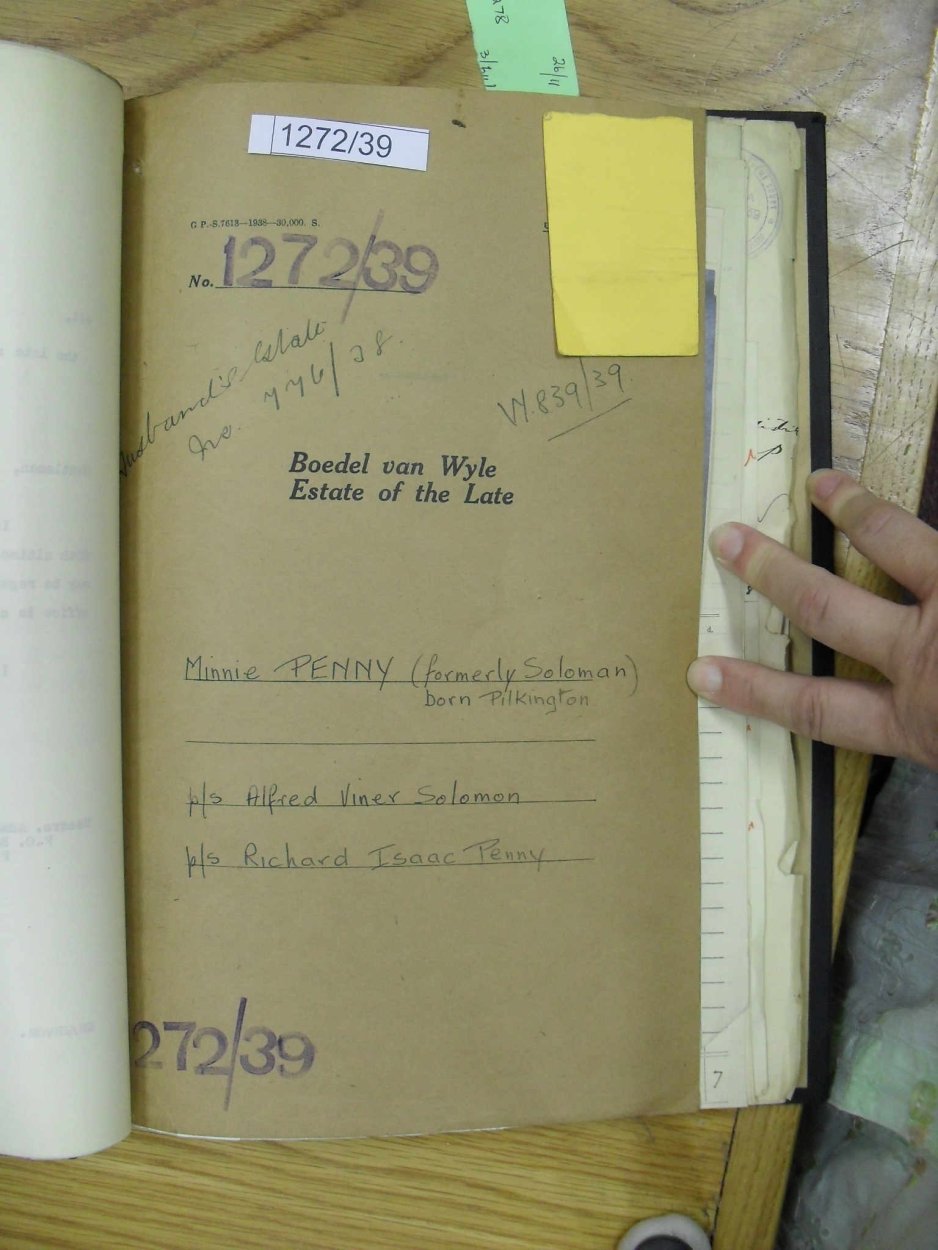 26/11
1272/39
G P.-S.7613—1938—30,000. S.
No. 1272/39
Husband's Estate
No. 776/38.
W.839/39.
Boedel van Wyle
Estate of the Late
Minnie PENNY (formerly Soloman)
born Pilkington
p/s Alfred Viner Solomon
p/s Richard Isaac Penny
272/39
7